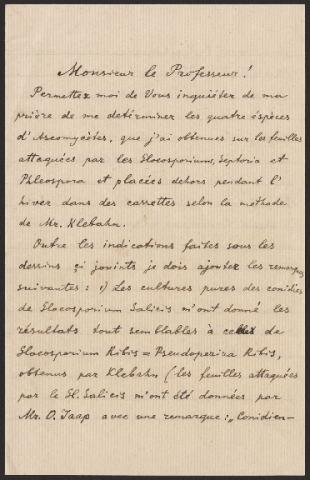 Monsieur le Professeur!
Permettez moi de Vous inquiéter de ma
prière de me determiner les quatre éspèces
d'Ascomycètes, que j'ai obtenues sur les feuilles
attaquées par les Gloeosporium, Septoria et
Phleospora et placées dehors pendant l'
hiver dans des carrettes selon la méthode
de Mr. Klebahn.
Outre les indications faites sous les
dessins çi jouints je dois ajouter les remarques
suivantes: 1) Les cultures pures des conidies
de Gloeosporium Salicis m'ont donné les
résultats tout semblables à de
Gloeosporium Ribis = Pseudopeziza Ribis,
obtenus par Klebahn (les feuilles attaquées
par le Gl. Salicis m'ont été données par
Mr. O. Jaap avec une remarque: „Conidien-